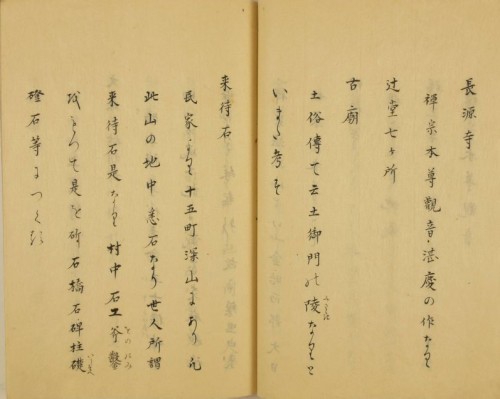 長源寺
禅宗本尊觀音湛慶の作なりと
辻堂七ケ所
古廟
土俗傳て云土御門の陵なりと
いまた考す
来待石
民家より十五町深山にあり凡
此山の地中悉石なり世人所謂
来待石是なり村中石工斧鑿
をもつて是を 石橋石碑柱礎
磴石等につくる